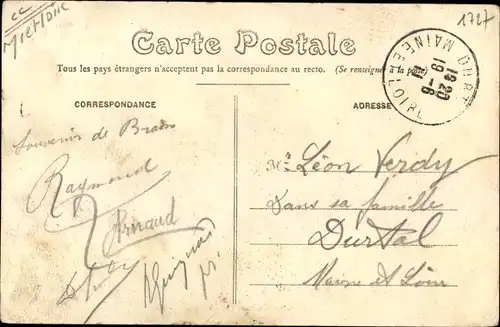 1727
cc
Carte Postale
Tous les pays étrangers n'acceptent pas la correspondance au recto. (Se renseigner à la poste)
CORRESPONDANCE
ADRESSE
MAINE-ET-LOIRE
19-6
Souvenir de
Raymond
Mr Léon Verdy
Dans sa famille
Durtal
Maine et Loire